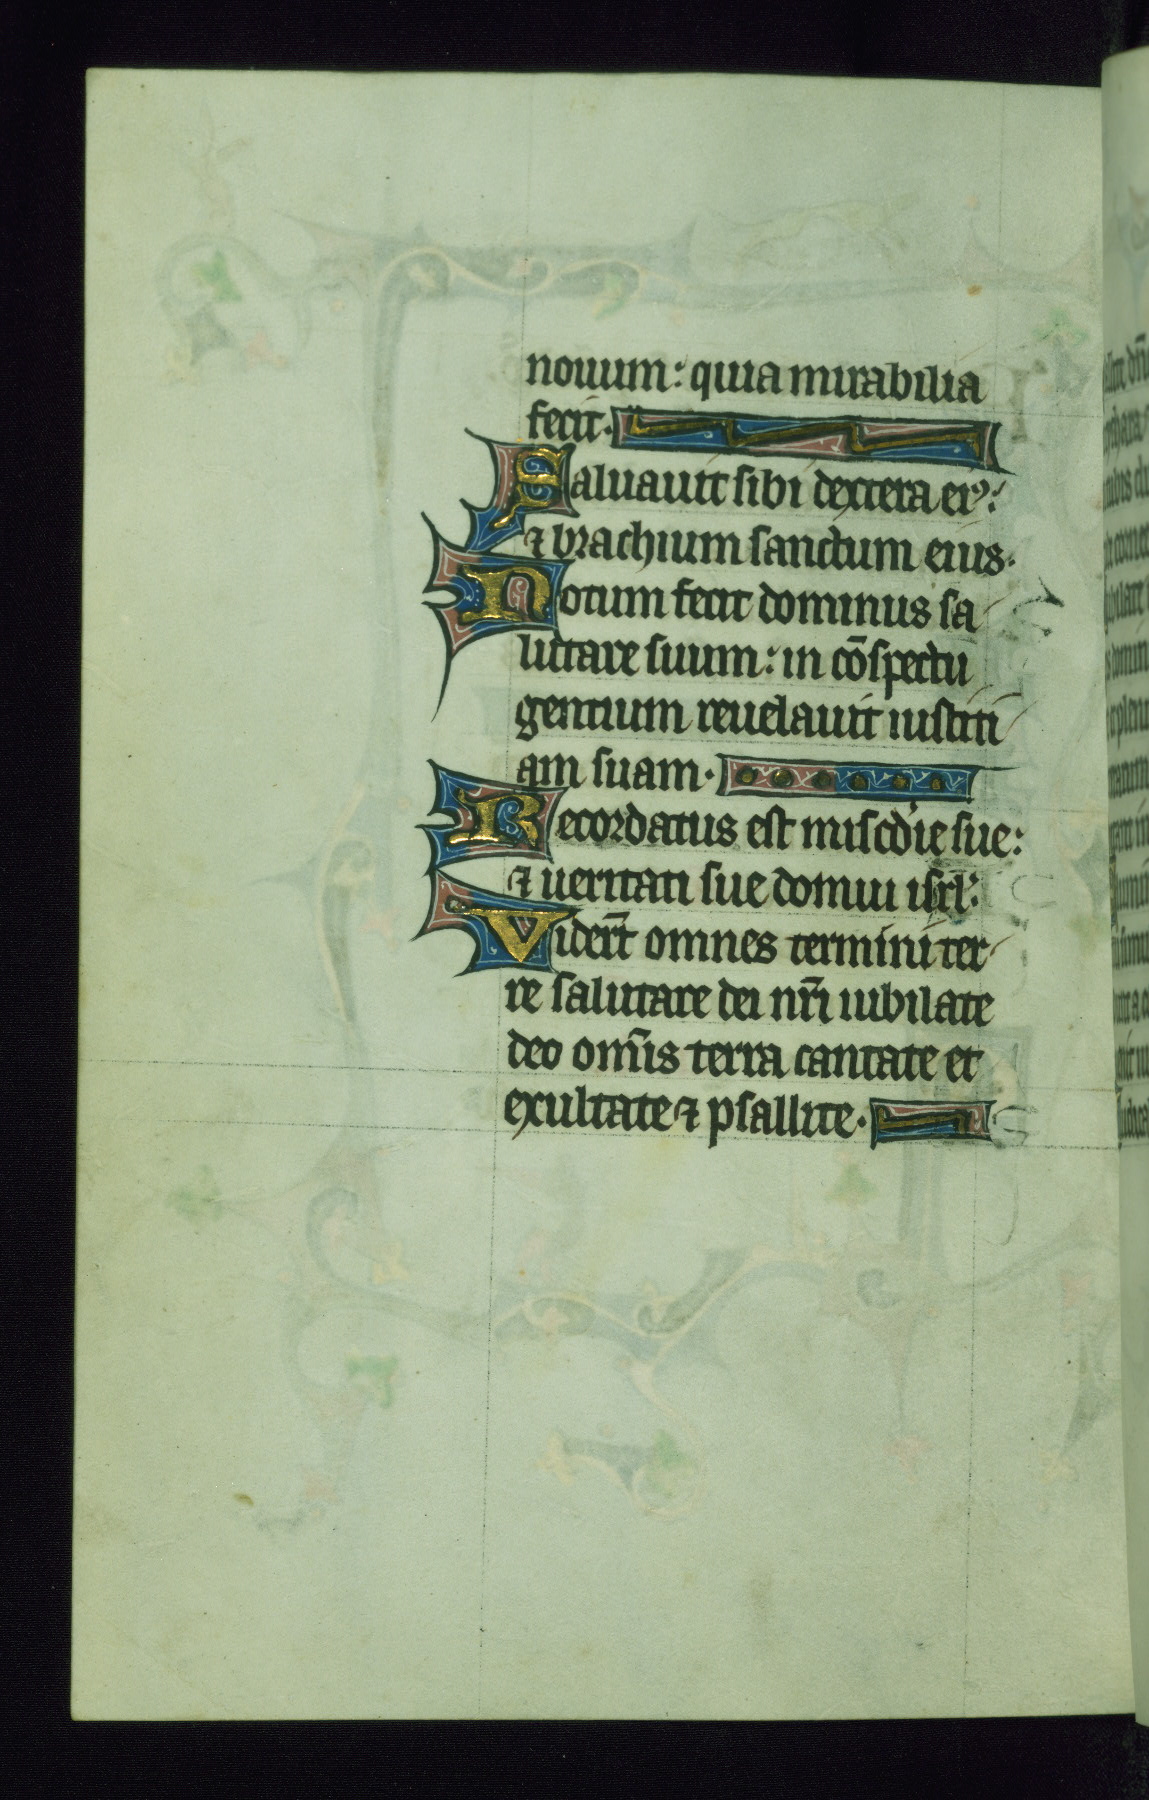 nouum: quia mirabilia
fecit.
Saluauit sibi dextera eiꝰ:
⁊ brachium sanctum eius.
Notum fecit dominus sa
lutare suum: in cōspectu
gentium reuelauit iustiti
am suam.
Recordatus est miscd'ie sue:
⁊ ueritati sue domui isrl:
Viderūt omnes termini ter
re salutare dei nr̄i iubilate
deo om̄is terra cantate et
exultate ⁊ psallite.